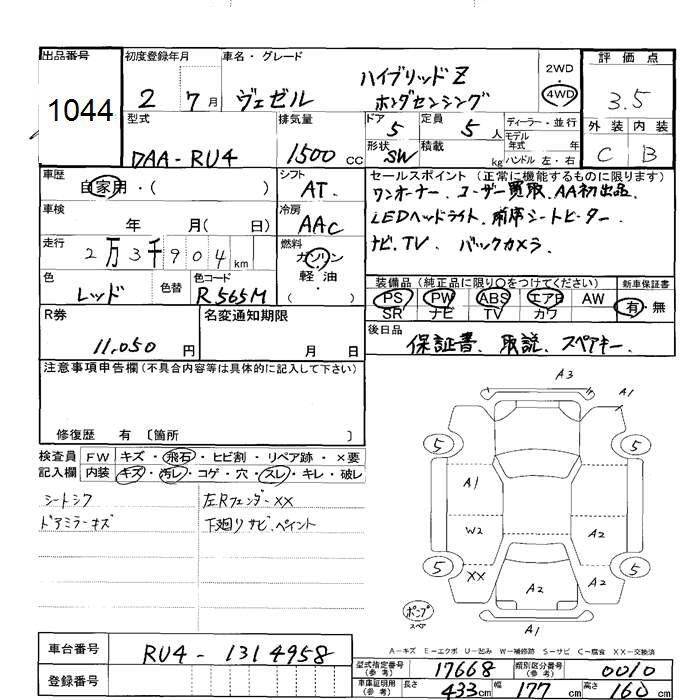 出品番号
1044
初度登録年月
2 7月
車名・グレード
ヴェゼル
ハイブリッドZ
ホンダセンシング
2WD
4WD
評価点
3.5
外装 内装
C B
型式
DAA-RU4
排気量
1500cc
ドア
5
定員
5人
形状
SW
積載
kg
ディーラー・並行
モデル
年式 年
ハンドル 左・右
車歴
自家用・( )
シフト
AT.
車検
年 月( 日)
冷房
AAC
走行
2万3千904km
燃料
ガソリン
軽・油
( )
色
レッド
色替
色コード
R565M
セールスポイント (正常に機能するものに限ります)
ワンオーナー. ユーザー買取. AA初出品.
LEDヘッドライト. 前席シートヒーター.
ナビ. TV. バックカメラ.
装備品(純正品に限り○をつけてください)
PS PW ABS エアB AW
SR ナビ TV カワ
新車保証書
有・無
R券
11,050円
名変通知期限
月 日
後日品
保証書、取説、スペアキー.
注意事項申告欄(不具合内容等は具体的に記入して下さい)
修復歴 有 〔箇所 〕
検査員
記入欄
FW キズ・飛石・ヒビ割・リペア跡・×要
内装 キズ・汚レ・コゲ・穴・スレ・キレ・破レ
シートシワ
ドアミラーキズ
左Rフェンダーxx
下廻りサビ、ペイント
A3
A1
5
5
A1
W2
A2
5
XX
A2
A2
5
ポンプ
スペア
A1
A-キズ E-エクボ U-凹み W-補修跡 S-サビ C-腐食 XX-交換済
車台番号
RU4-1314958
登録番号
型式指定番号
(参考)
17668
類別区分番号
(参考)
0010
車庫証明用
(参考)
長さ
433cm
幅
177cm
高さ
160cm